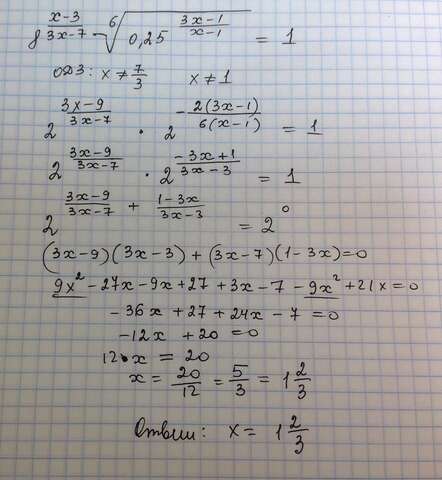 8^((x-3)/(3x-7)) · ⁶√(0,25^((3x-1)/(x-1))) = 1
ОДЗ: x ≠ 7/3 x ≠ 1
2^((3x-9)/(3x-7)) · 2^(-2(3x-1)/(6(x-1))) = 1
2^((3x-9)/(3x-7)) · 2^((-3x+1)/(3x-3)) = 1
2^((3x-9)/(3x-7) + (1-3x)/(3x-3)) = 2^0
(3x-9)(3x-3) + (3x-7)(1-3x)=0
9x² -27x-9x+27 +3x-7-9x² +21x=0
-36x+27+24x-7=0
-12x +20 =0
12·x = 20
x = 20/12 = 5/3 = 1 2/3
Ответ: x = 1 2/3